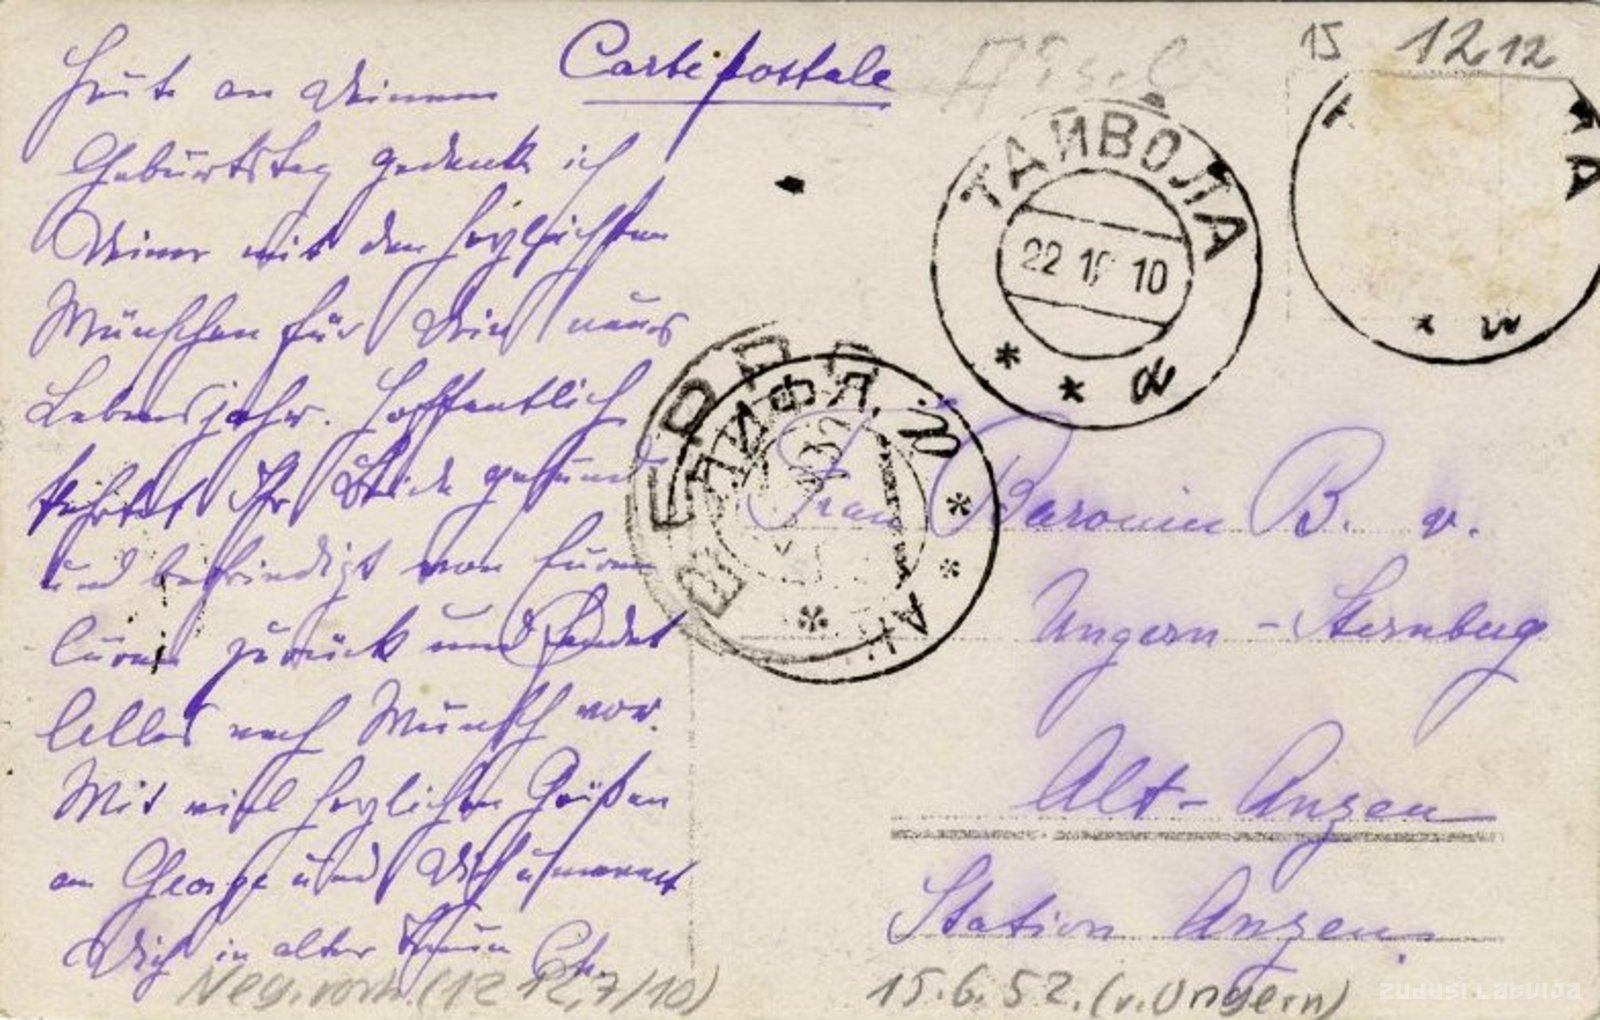 Carte postale
Heute an Deinem
Geburtstag gedenke ich
Deiner mit den herzlichsten
Wünschen für Dein neues
Lebensjahr. Hoffentlich
kehrtet Ihr Beide gesund
und befriedigt von Eurer
zurück und fandet
Alles nach Wunsch vor.
Mit viel herzlichen Grüßen
an George und Dich umarmt
Dich in alter Treue
Neg. vorh. (12 12,7/10)
15 12.12
ТАЙВОЛА
22 10 10
* * а
А
ЛИФЛ.
Frau Baronin B. v.
Ungern-Sternberg
Alt-Anzen
Station Anzen.
15.6.52. (v. Ungern)
zudusi Latvija